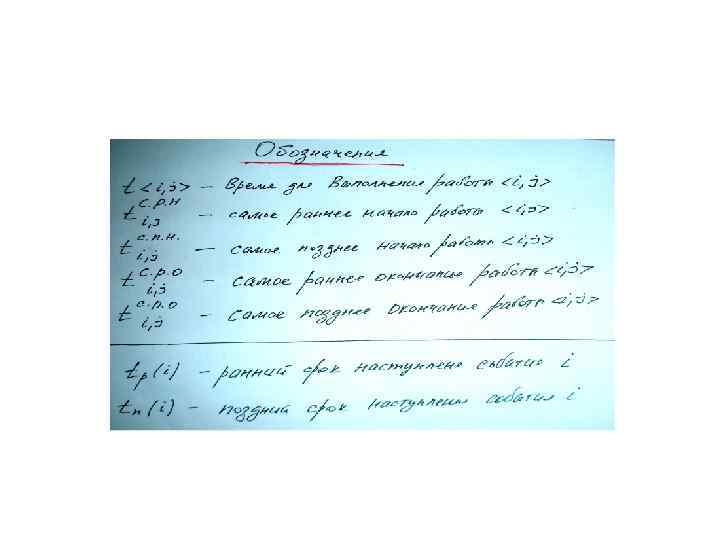 Обозначения
t <i,j> – Время для Выполнения работы <i,j>
t с.р.н i,j – самое раннее начало работы <i,j>
t с.п.н. i,j – самое позднее начало работы <i,j>
t с.р.о i,j – самое раннее окончание работы <i,j>
t с.п.о i,j – самое позднее окончание работы <i,j>
tр(i) – ранний срок наступления события i
tп(i) – поздний срок наступления события i